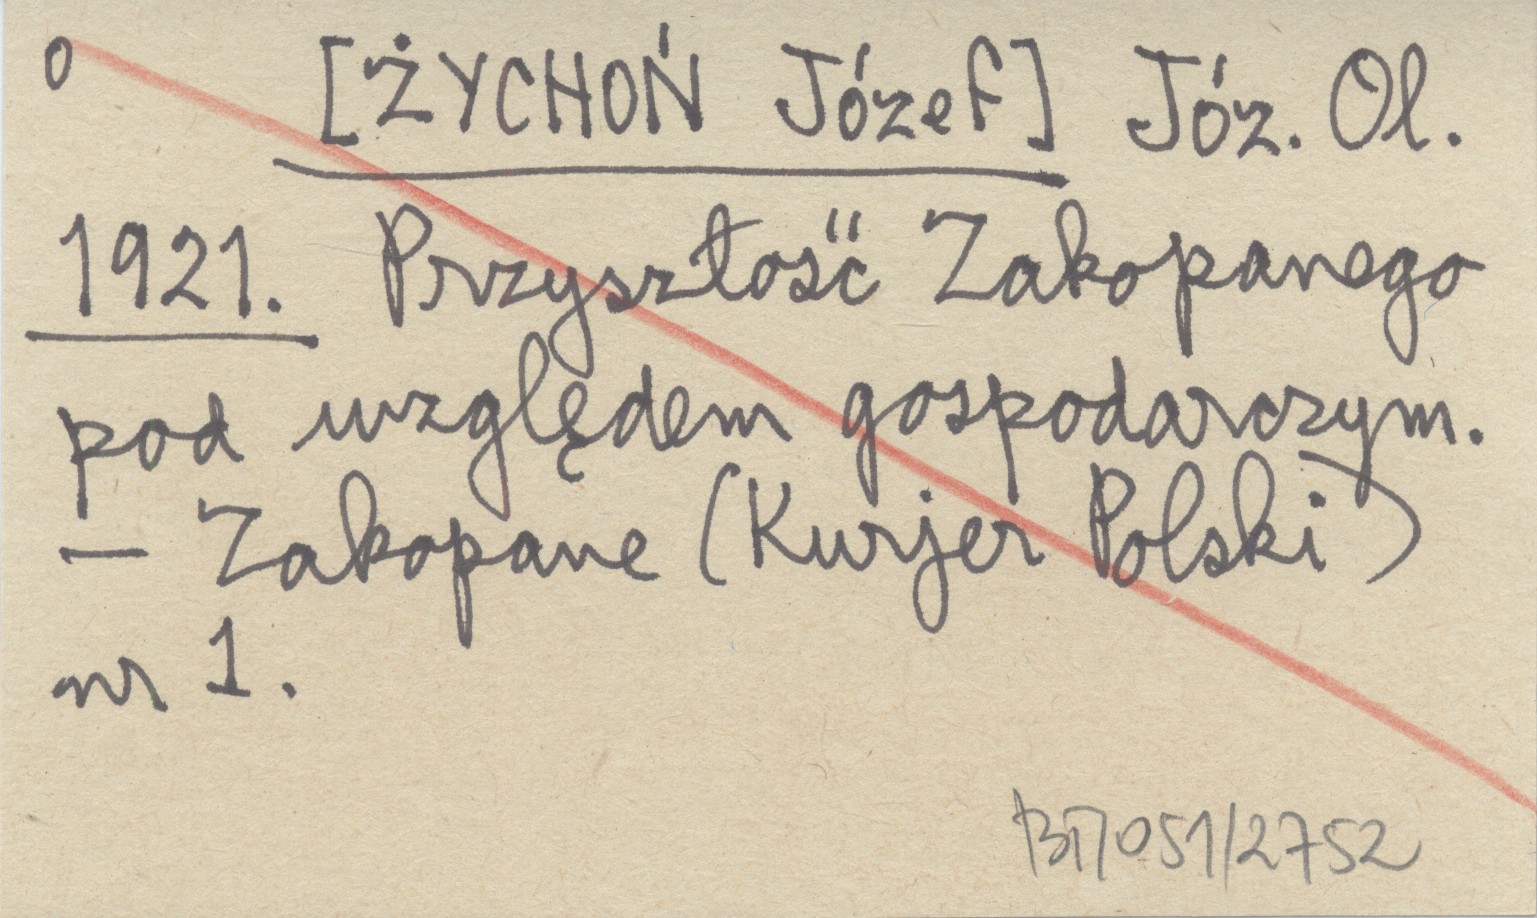 o [ŻYCHOŃ Józef] Józ. Ol.
1921. Przyszłość Zakopanego
pod względem gospodarczym.
— Zakopane (Kurjer Polski)
nr 1.
051/2752